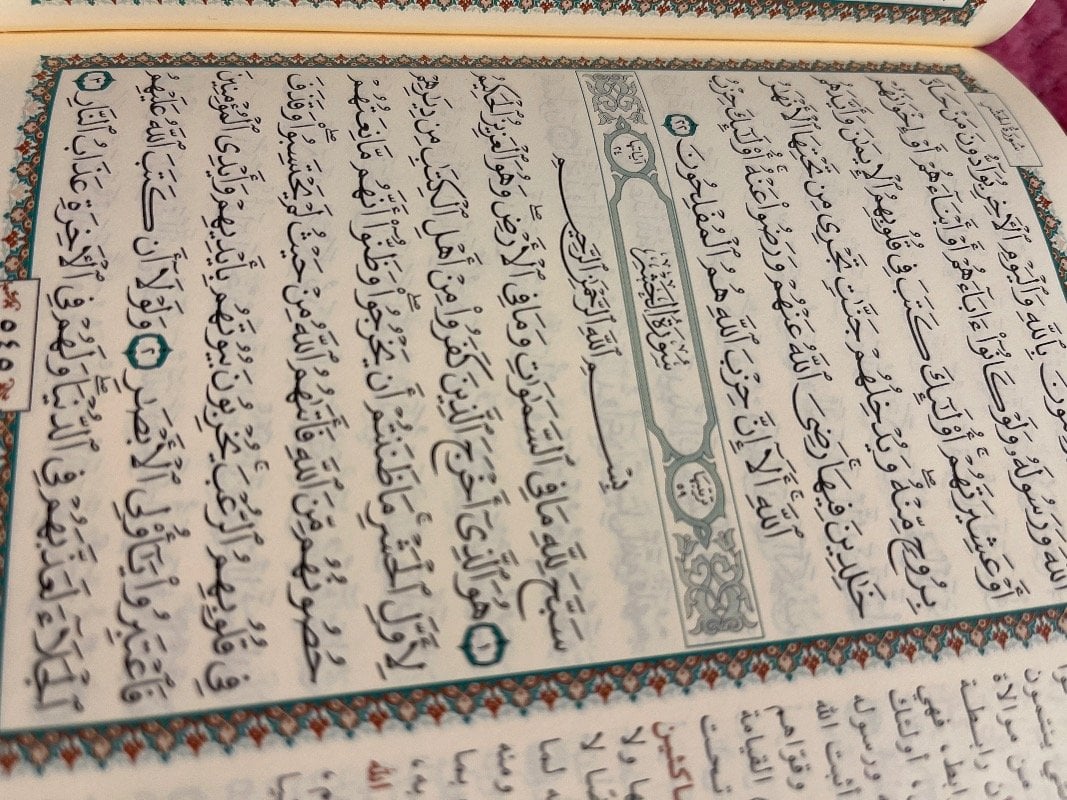 سُورَةُ المجَادلة
بِٱللَّهِ وَٱلْيَوْمِ ٱلْأٓخِرِ يُوَآدُّونَ مَنْ حَآدَّ
ٱللَّهَ وَرَسُولَهُۥ وَلَوْ كَانُوٓا۟ ءَابَآءَهُمْ أَوْ أَبْنَآءَهُمْ أَوْ إِخْوَٰنَهُمْ
أَوْ عَشِيرَتَهُمْ ۚ أُو۟لَٰٓئِكَ كَتَبَ فِى قُلُوبِهِمُ ٱلْإِيمَٰنَ وَأَيَّدَهُم
بِرُوحٍ مِّنْهُ ۖ وَيُدْخِلُهُمْ جَنَّٰتٍ تَجْرِى مِن تَحْتِهَا ٱلْأَنْهَٰرُ
خَٰلِدِينَ فِيهَا ۚ رَضِىَ ٱللَّهُ عَنْهُمْ وَرَضُوا۟ عَنْهُ ۚ أُو۟لَٰٓئِكَ حِزْبُ
ٱللَّهِ ۚ أَلَآ إِنَّ حِزْبَ ٱللَّهِ هُمُ ٱلْمُفْلِحُونَ ٢٢
ترتيبها ٥٩ سُورَةُ الحَشْرِ آياتها ٢٤
بِسْمِ ٱللَّهِ ٱلرَّحْمَٰنِ ٱلرَّحِيمِ
سَبَّحَ لِلَّهِ مَا فِى ٱلسَّمَٰوَٰتِ وَمَا فِى ٱلْأَرْضِ ۖ وَهُوَ ٱلْعَزِيزُ ٱلْحَكِيمُ
١ هُوَ ٱلَّذِىٓ أَخْرَجَ ٱلَّذِينَ كَفَرُوا۟ مِنْ أَهْلِ ٱلْكِتَٰبِ مِن دِيَٰرِهِمْ
لِأَوَّلِ ٱلْحَشْرِ ۚ مَا ظَنَنتُمْ أَن يَخْرُجُوا۟ ۖ وَظَنُّوٓا۟ أَنَّهُم مَّانِعَتُهُمْ
حُصُونُهُم مِّنَ ٱللَّهِ فَأَتَىٰهُمُ ٱللَّهُ مِنْ حَيْثُ لَمْ يَحْتَسِبُوا۟ ۖ وَقَذَفَ
فِى قُلُوبِهِمُ ٱلرُّعْبَ ۚ يُخْرِبُونَ بُيُوتَهُم بِأَيْدِيهِمْ وَأَيْدِى ٱلْمُؤْمِنِينَ
فَٱعْتَبِرُوا۟ يَٰٓأُو۟لِى ٱلْأَبْصَٰرِ ٢ وَلَوْلَآ أَن كَتَبَ ٱللَّهُ عَلَيْهِمُ
ٱلْجَلَآءَ لَعَذَّبَهُمْ فِى ٱلدُّنْيَا ۖ وَلَهُمْ فِى ٱلْأٓخِرَةِ عَذَابُ ٱلنَّارِ ٣
٥٤٥
من موالاة
رابطة
فهي
أولئك
ورسوله
أثبت الله
وقواهم
القيامة
تحت
ماكثين
ولا